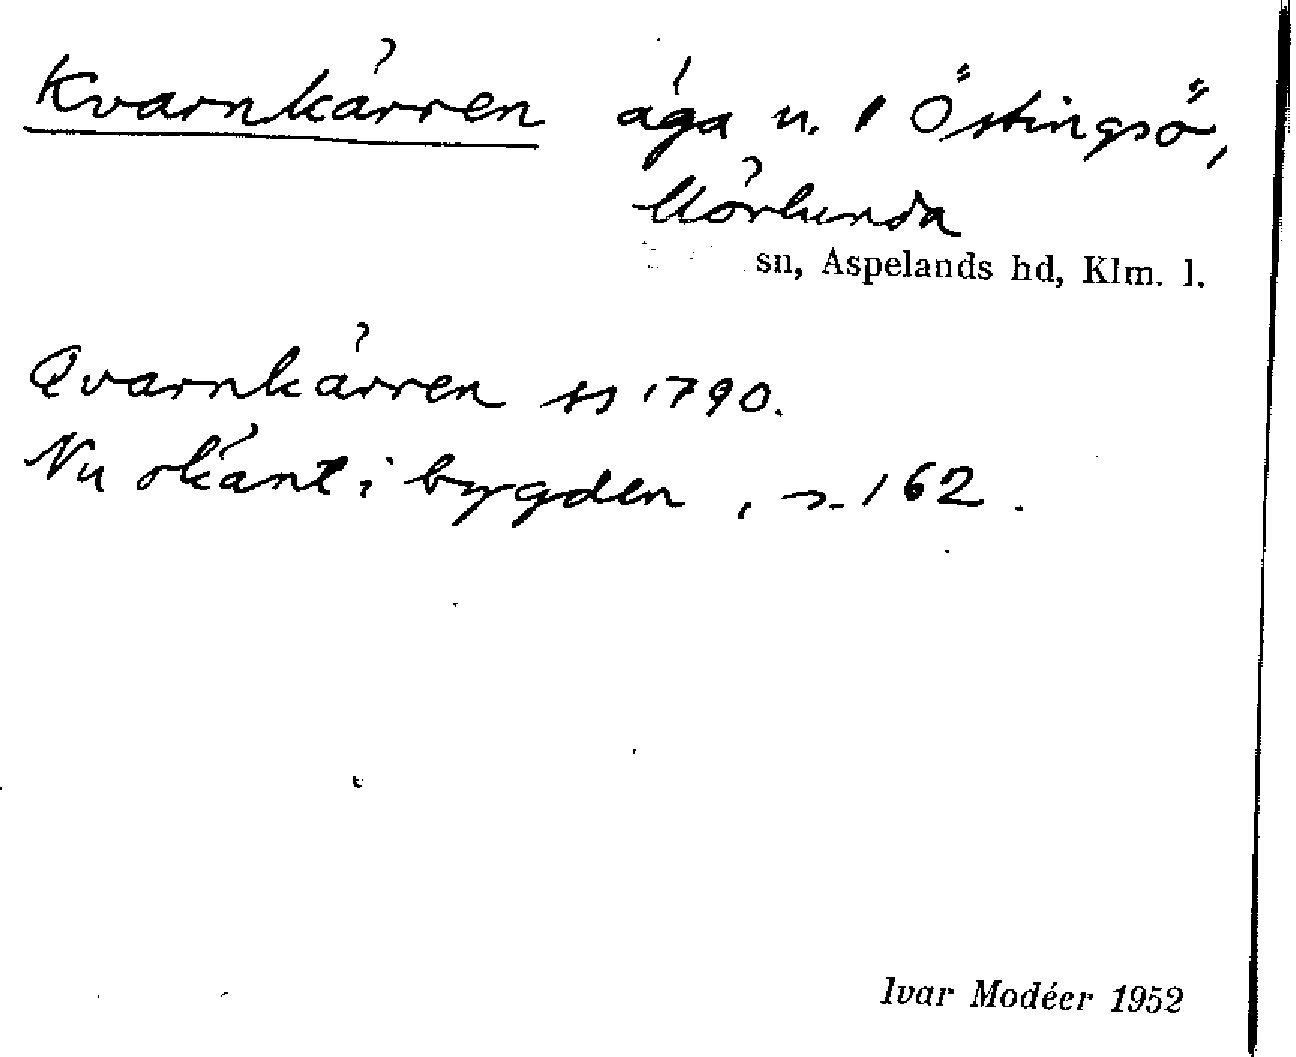 Kvarnkärren äga u. 1 Östingsö,
Mörlunda
sn, Aspelands hd, Klm. l.
Qvarnkärren ss 1790.
Nu okänt i bygden, s. 162.
Ivar Modéer 1952